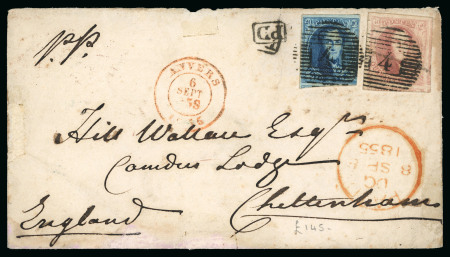 p.p.
PD
4
ANVERS
6
SEPT
58
Hill Wallace Esqre
Camden Lodge
Cheltenham
England
8
SP
1855
£145.